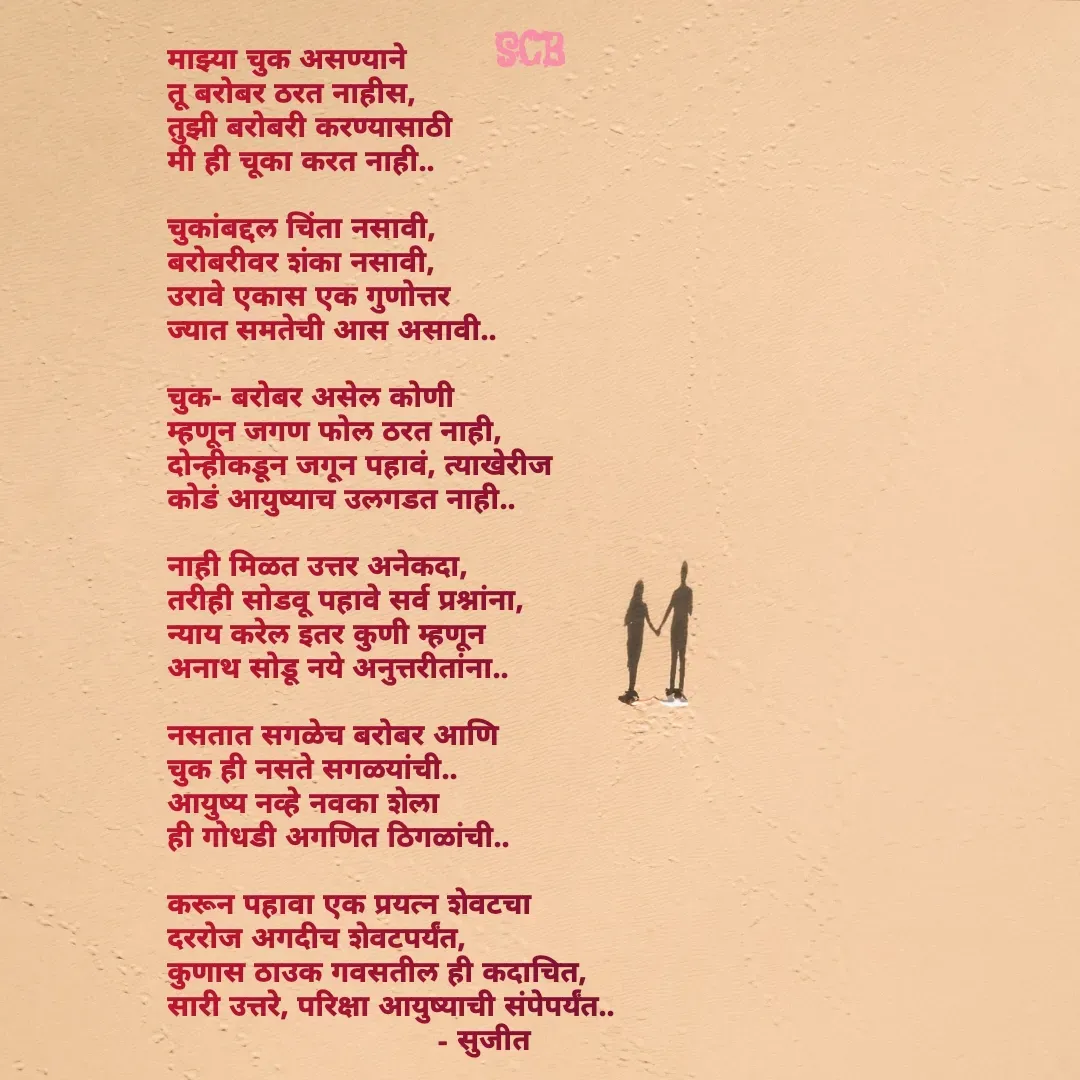 SCB
माझ्या चुक असण्याने
तू बरोबर ठरत नाहीस,
तुझी बरोबरी करण्यासाठी
मी ही चूका करत नाही..
चुकांबद्दल चिंता नसावी,
बरोबरीवर शंका नसावी,
उरावे एकास एक गुणोत्तर
ज्यात समतेची आस असावी..
चुक- बरोबर असेल कोणी
म्हणून जगण फोल ठरत नाही,
दोन्हीकडून जगून पहावं, त्याखेरीज
कोडं आयुष्याच उलगडत नाही..
नाही मिळत उत्तर अनेकदा,
तरीही सोडवू पहावे सर्व प्रश्नांना,
न्याय करेल इतर कुणी म्हणून
अनाथ सोडू नये अनुत्तरीतांना..
नसतात सगळेच बरोबर आणि
चुक ही नसते सगळयांची..
आयुष्य नव्हे नवका शेला
ही गोधडी अगणित ठिगळांची..
करून पहावा एक प्रयत्न शेवटचा
दररोज अगदीच शेवटपर्यंत,
कुणास ठाउक गवसतील ही कदाचित,
सारी उत्तरे, परिक्षा आयुष्याची संपेपर्यंत..
- सुजीत